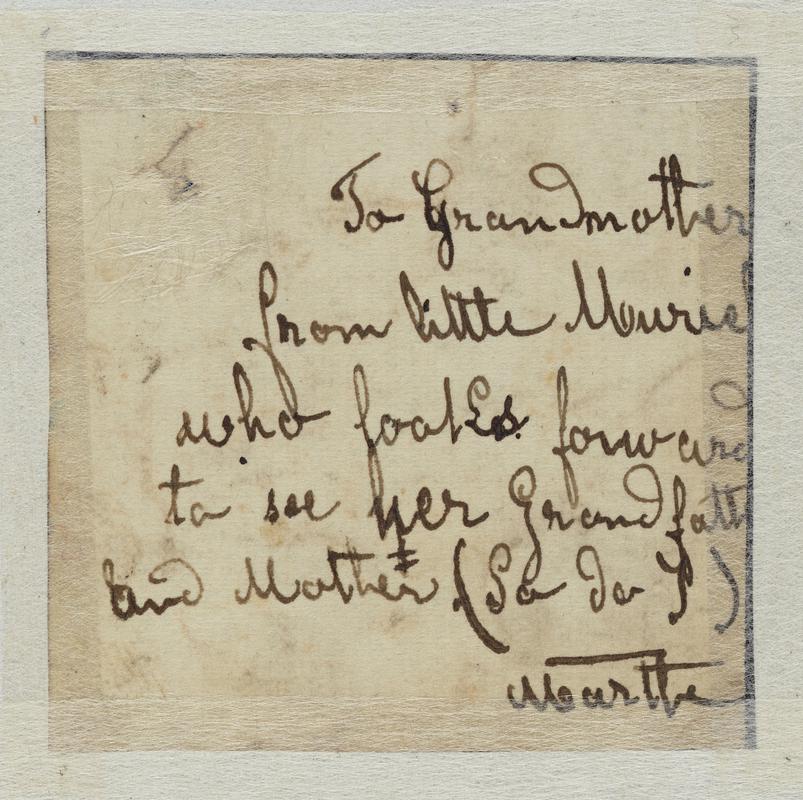 To Grandmother
from little Muriel
who looks forward
to see her Grandfath
and Mother (So do I)
Marthe